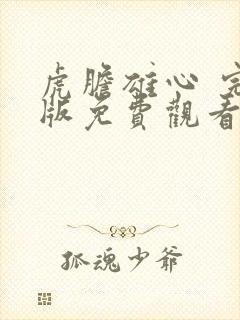 虎膽雄心 完
版免費觀看
孤魂少爷